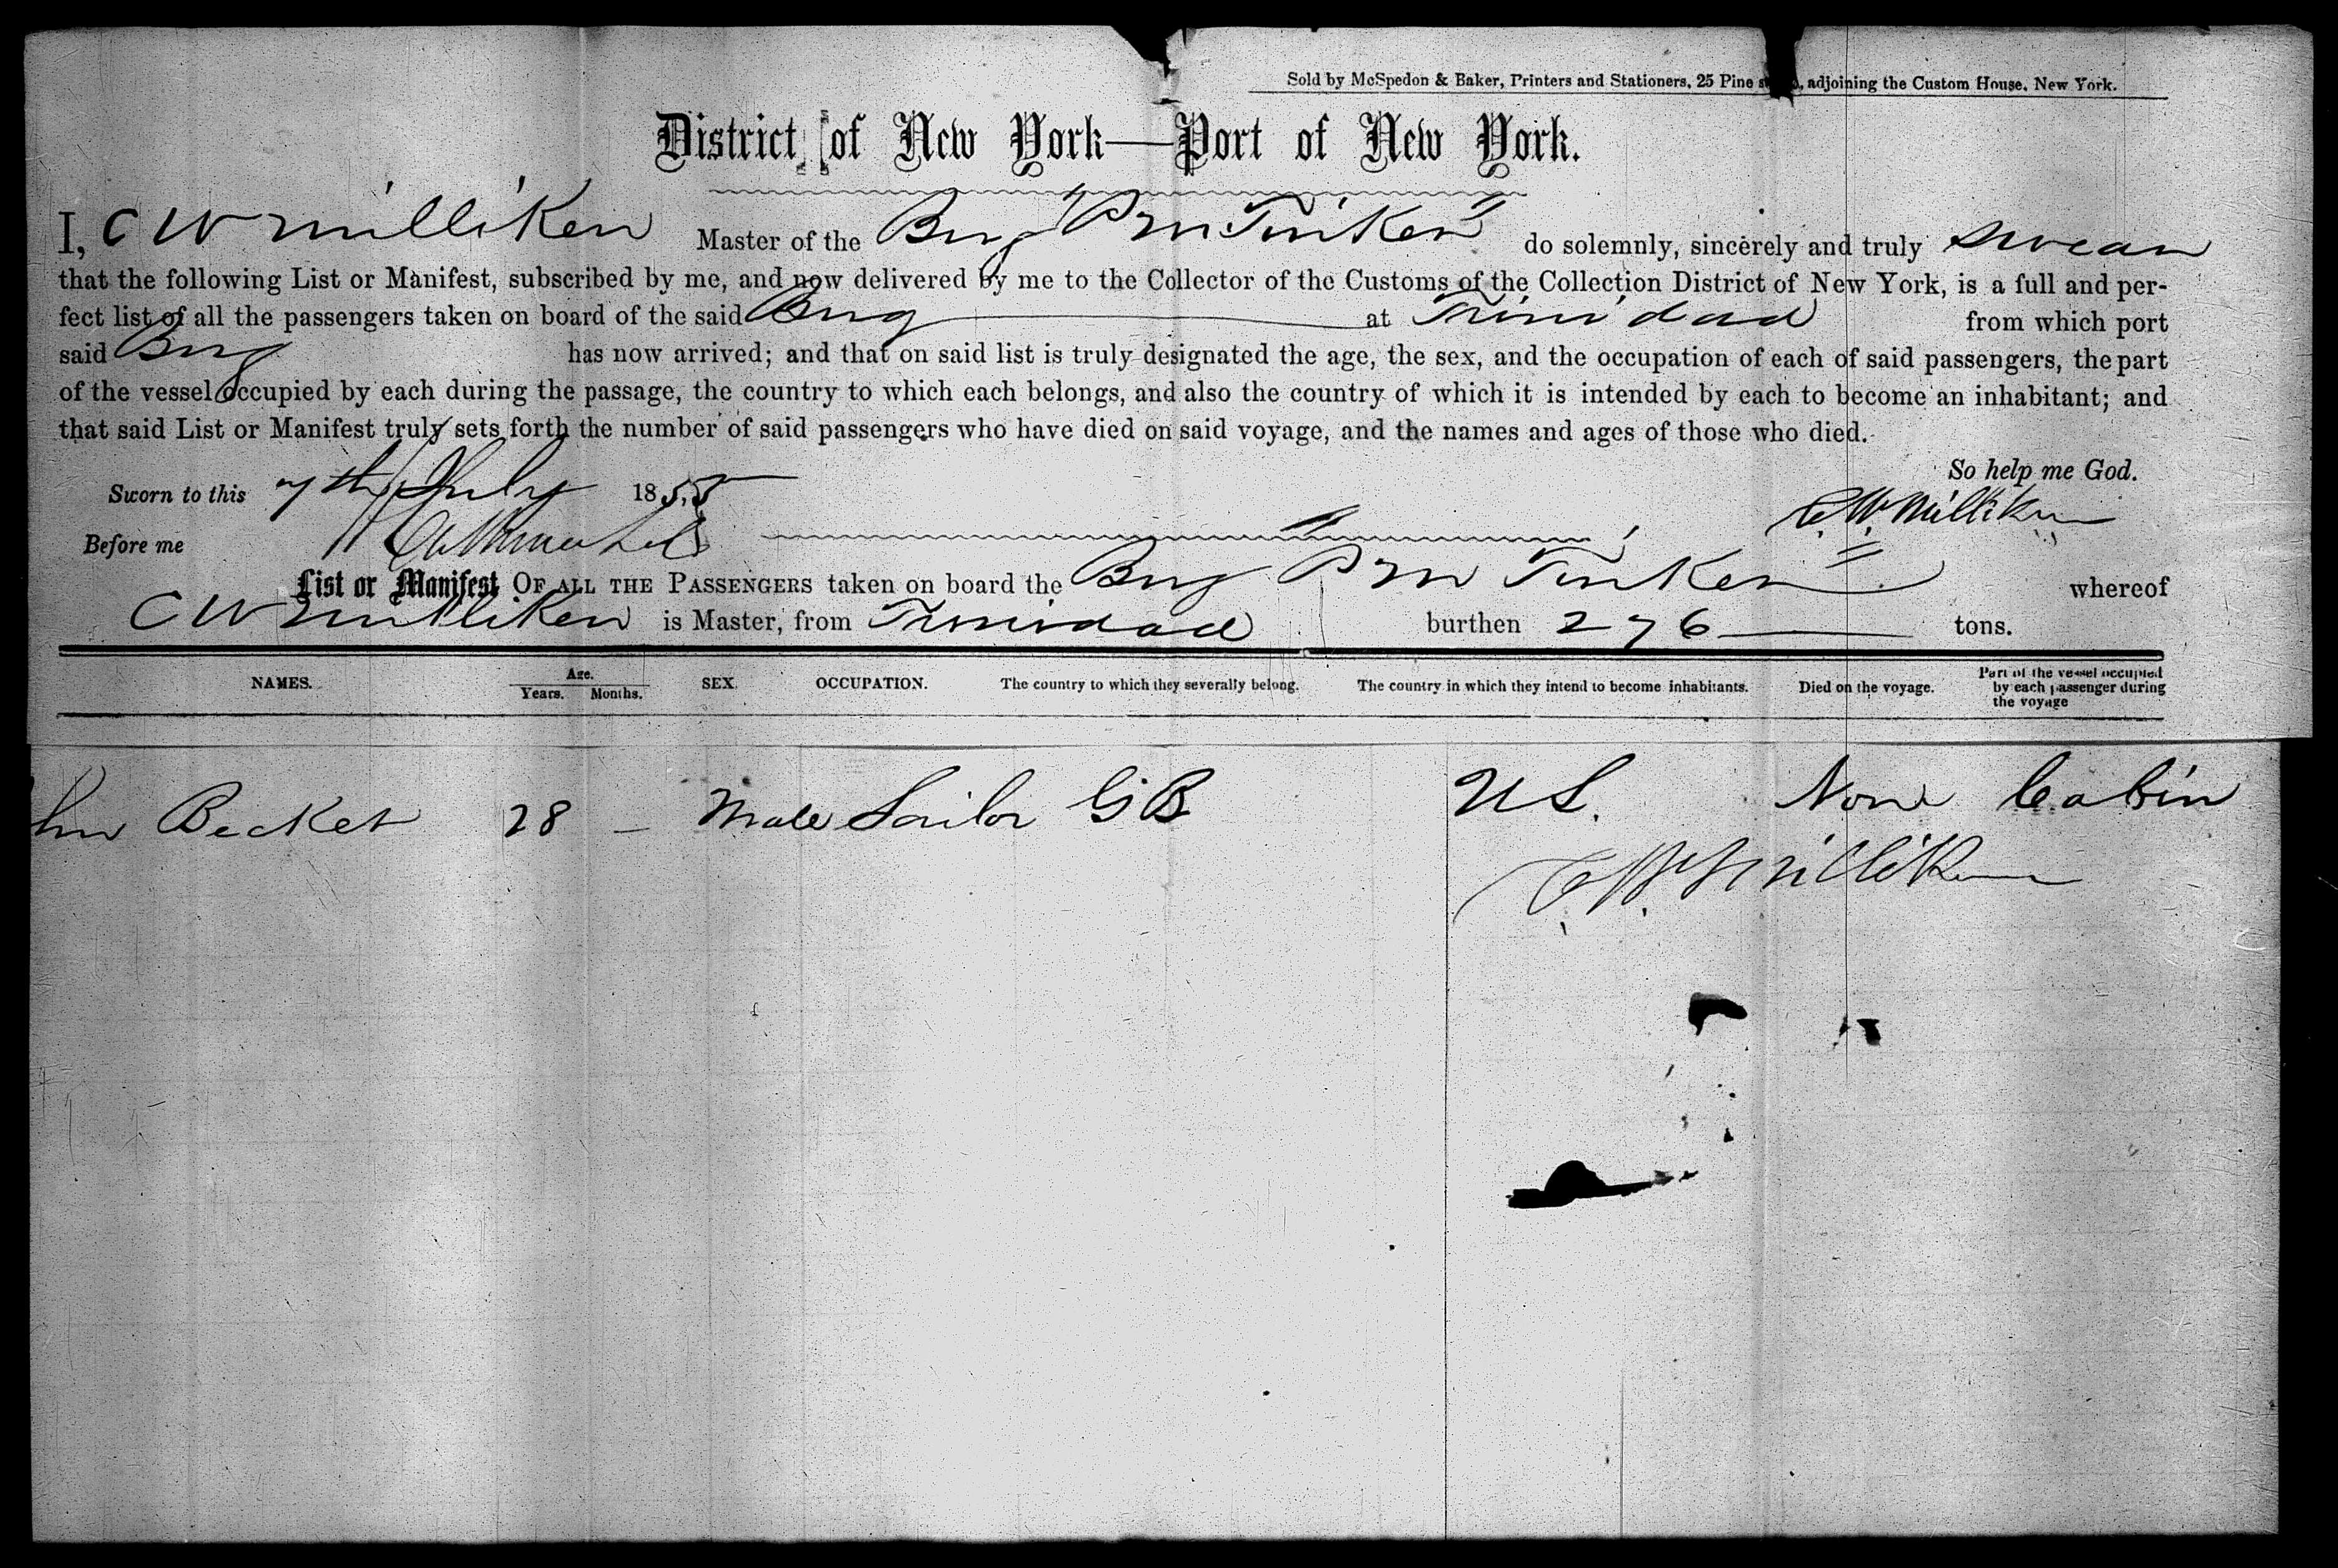 Sold by McSpedon & Baker, Printers and Stationers, 25 Pine adjoining the Custom House, New York.
District of New York—Port of New York.
I, C W Milliken Master of the Brig "P M Tinker" do solemnly, sincerely and truly swear
that the following List or Manifest, subscribed by me, and now delivered by me to the Collector of the Customs of the Collection District of New York, is a full and per-
fect list of all the passengers taken on board of the said Brig at Trinidad from which port
said Brig has now arrived; and that on said list is truly designated the age, the sex, and the occupation of each of said passengers, the part
of the vessel occupied by each during the passage, the country to which each belongs, and also the country of which it is intended by each to become an inhabitant; and
that said List or Manifest truly sets forth the number of said passengers who have died on said voyage, and the names and ages of those who died.
So help me God.
Sworn to this 7th July 1855
C. W. Milliken
Before me
List or Manifest OF ALL THE PASSENGERS taken on board the Brig "P M Tinker" whereof
C W Milliken is Master, from Trinidad burthen 276 tons.
NAMES. Age. Years. Months. SEX. OCCUPATION. The country to which they severally belong. The country in which they intend to become inhabitants. Died on the voyage. Part of the vessel occupied by each passenger during the voyage
hn Becket 28 – Male Sailor GB US. None Cabin
C. W. Milliken